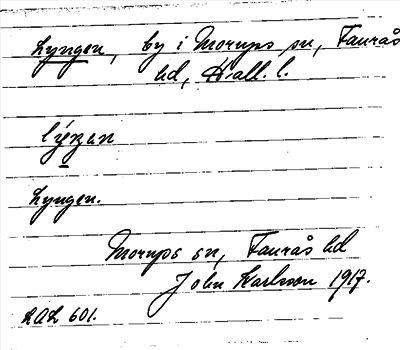 Lyngen, by i Morups sn, Faurås
hd, Hall. l.
lýŋən
Lyngen.
Morups sn, Faurås hd
John Karlsson 1917.
LAL 601.